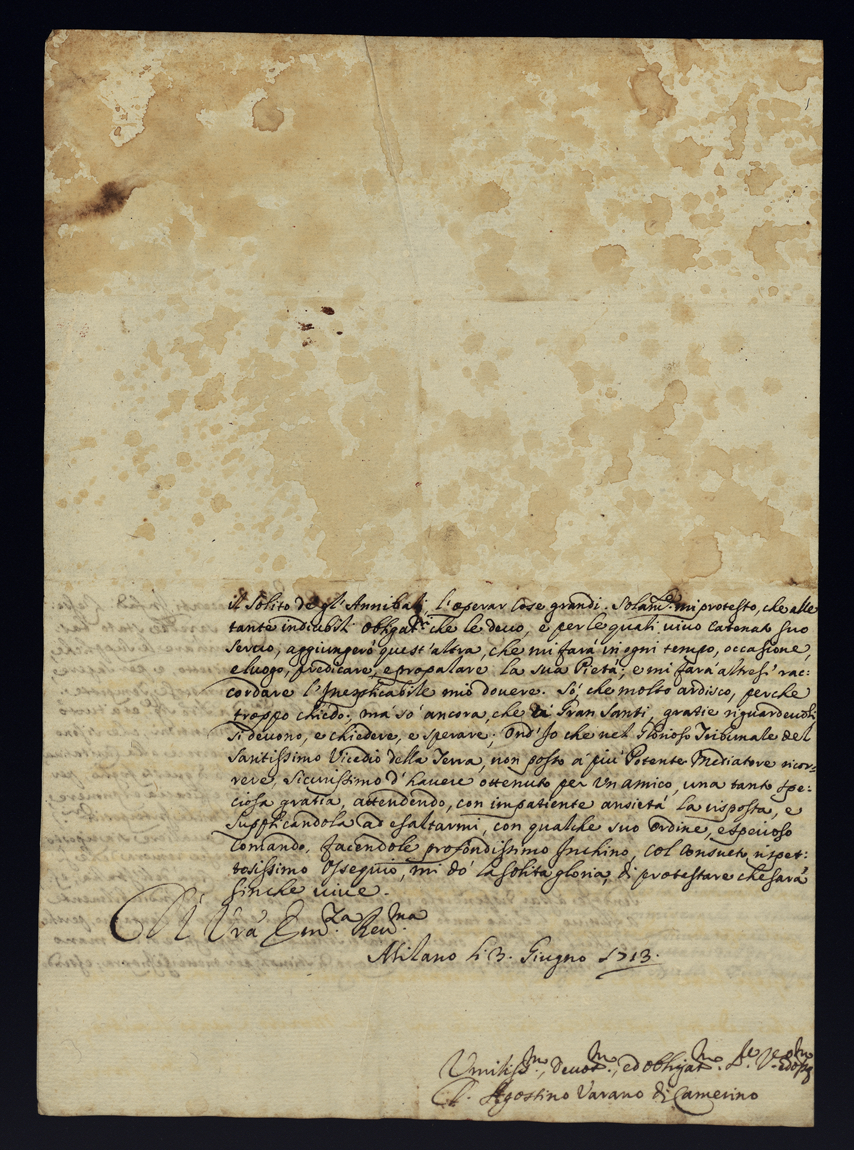 il solito de gl'Annibali, l'operar Cose grandi. Solam.te mi protesto, che alle
tante indicibili obligat.ni che le devo, e per le quali vivo Catenato suo
servo, aggiungerò quest'altra, che mi farà in ogni tempo, occasione,
e luogo, predicare, e propalare la sua Pietà; e mi farà altresì rac:
cordare l'Inesplicabile mio dovere. Sò, che molto ardisco, perche
troppo chiedo; mà sò ancora, che dà Gran Santi, gratie riguardevoli
si devono, e chiedere, e sperare, Ond'Io che nel Glorioso Tribunale del
Santissimo Vicedio della Terra, non posto à più Potente Mediatore ricor:
rere, sicurissimo d'havere ottenuto per un amico, una tanto spe:
ciosa gratia, attendendo, con impatiente ansietà la risposta, e
supplicandola ad esaltarmi, con qualche suo ordine, espressivo
Comando, facendole profondissimo Inchino, col Consueto rispet:
tosissimo Ossequio, mi dò la solita gloria, di protestare che sarà
finche vive.
Di V'rà Em.za Rev.ma
Milano li 3. Giugno 1713.
Umiliss.mo, devot.mo, ed obligat.mo
Agostino Varano di Camerino